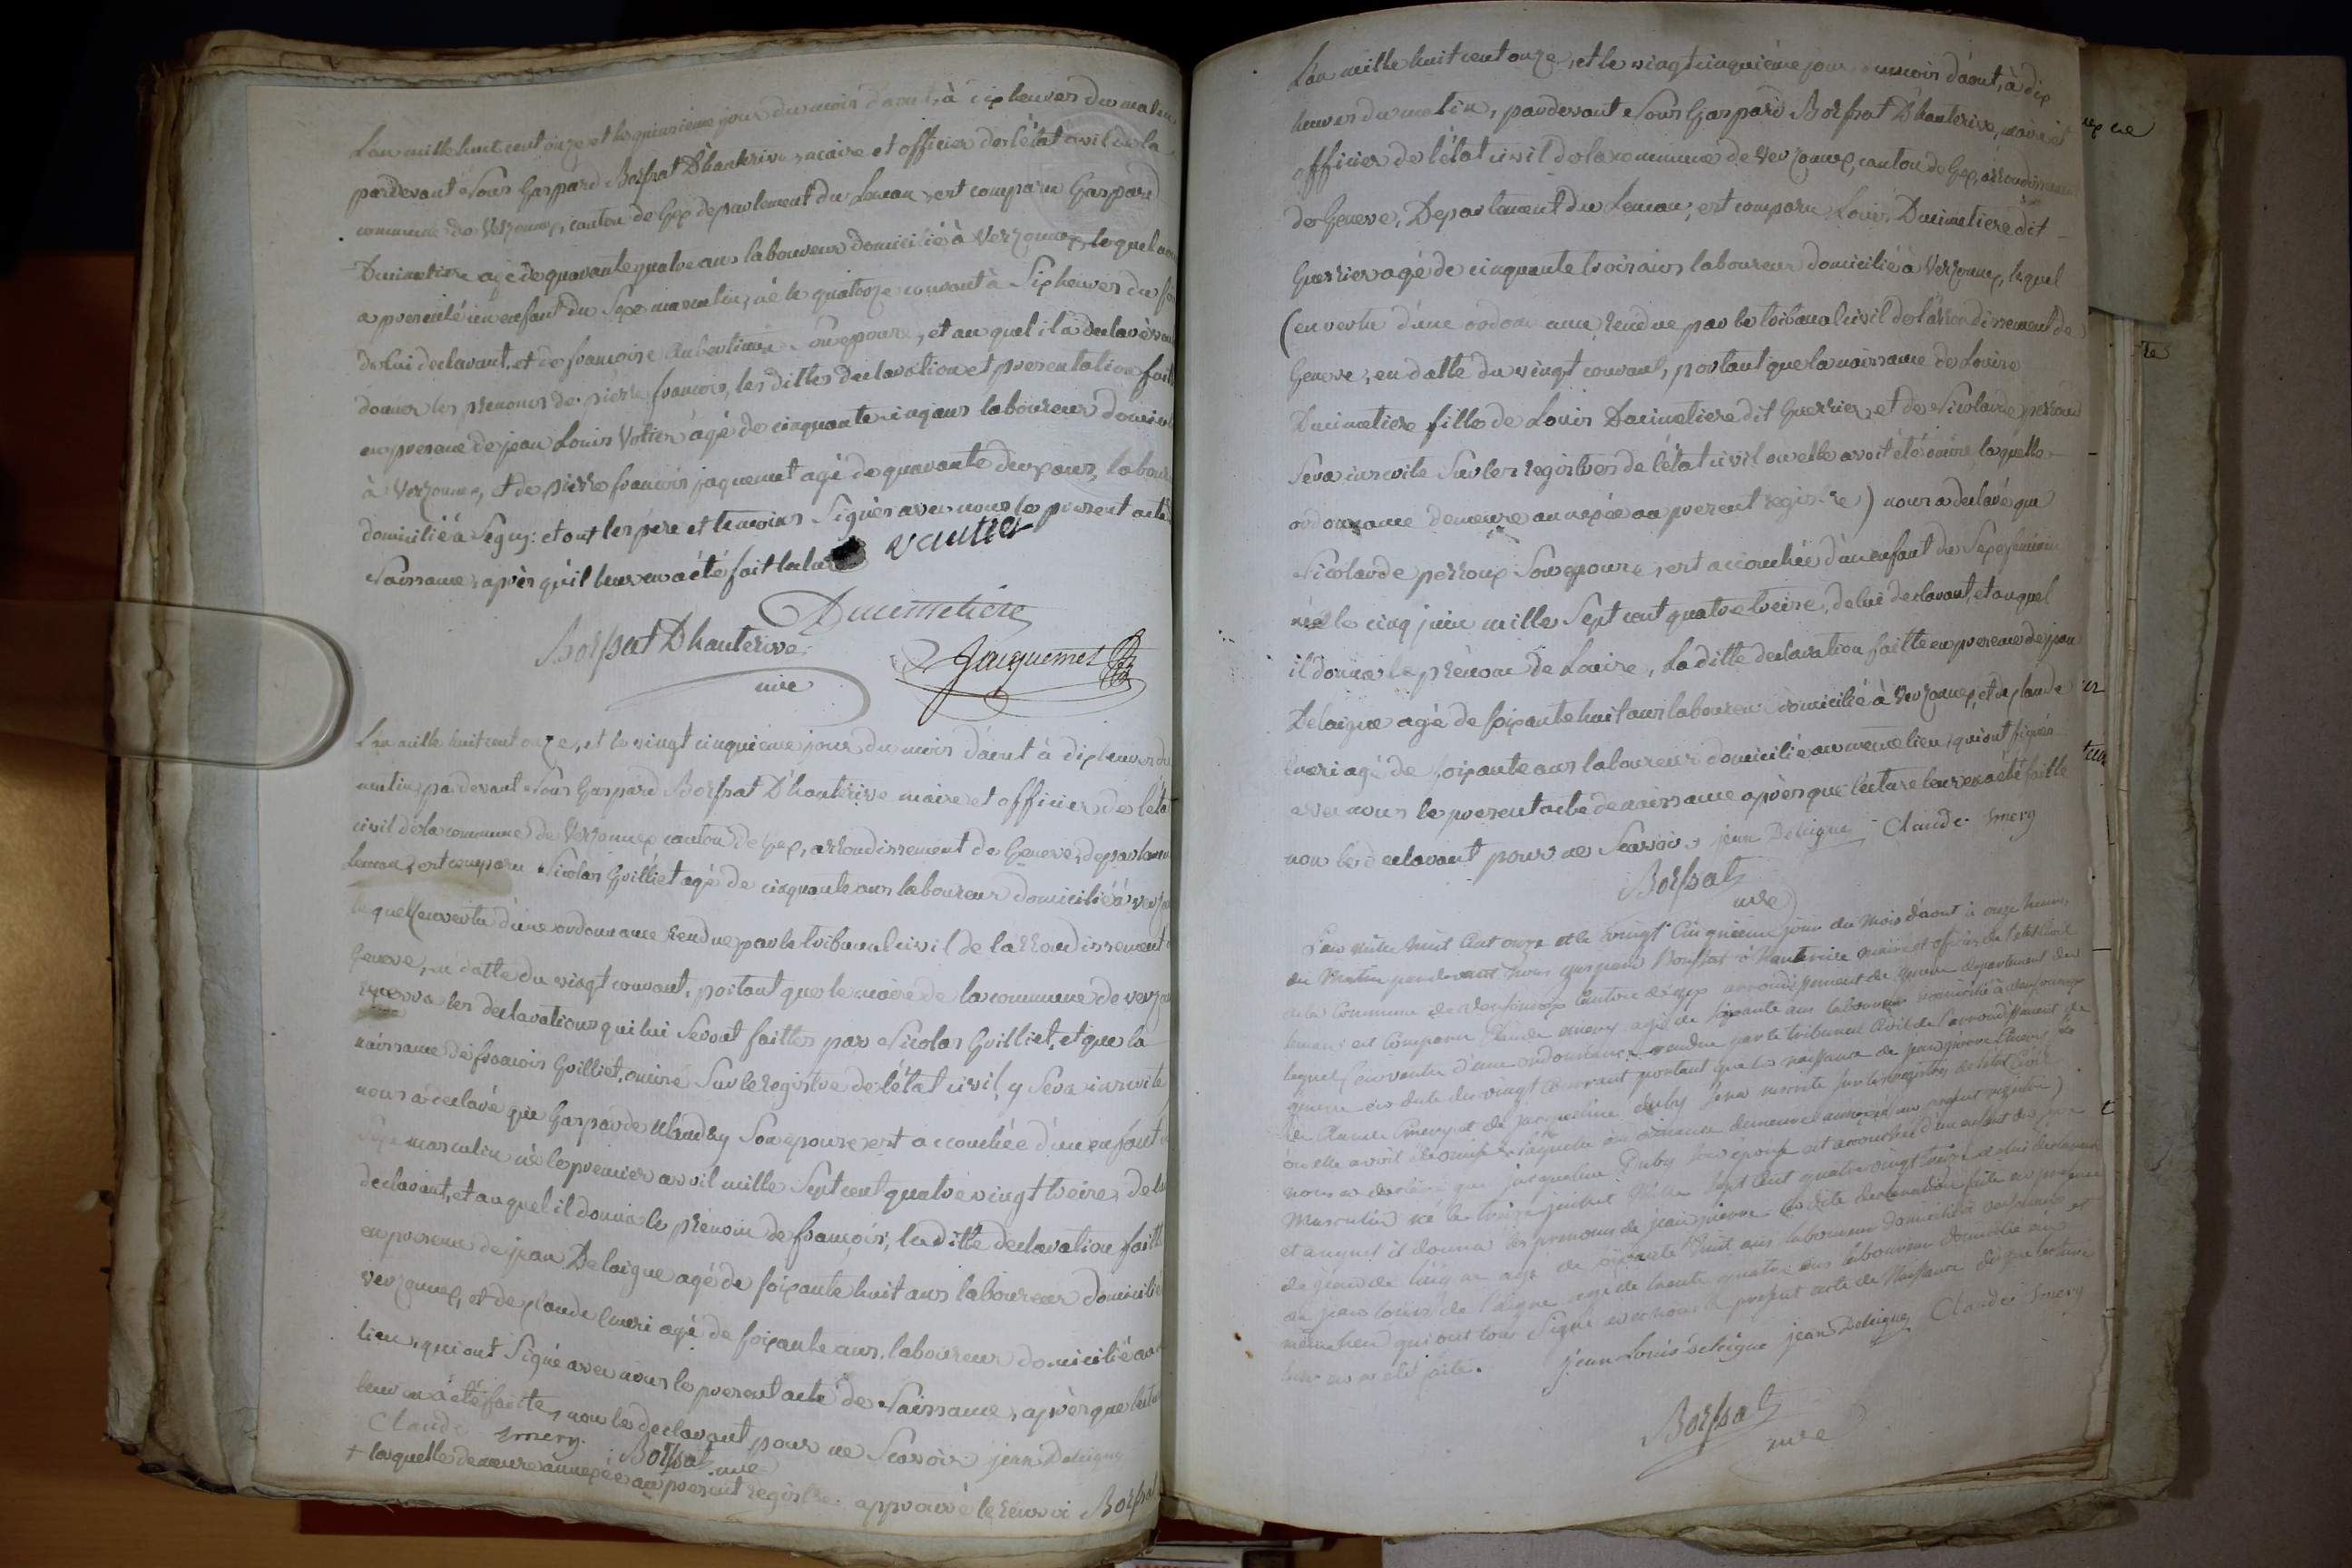 L'an mille huit cent onze et le quinsieme jour du mois d'aout, à dix heures du matin
pardevant Nous Gaspard Borssat D'hauterive, maire et officier de l'état civil de la
commune de Versonnex, canton de Gex departement du Leman, est comparu Gaspard
Ducimetiere agé de quarante quatre ans laboureur domicilié à Versonnex, lequel nous
a presenté un enfant du Sexe masculin, né le quatorze courant à Six heures du soir
de lui declarant, et de françoise Aubertinia Son epouse, et au quel il a declaré vou
donner les prenoms de pierre françois, les dittes declaration et presentation faite
en presence de jean Louis Votier agé de cinquante cinq ans laboureur domicili
à Versonnex, et de pierre françois jaquemet agé de quarante deux ans, laboure
domicilié à Segny: et ont les père et temoins Signés avec nous le present acte
Naissance, après qu'il leur en a été fait lecture vautier
Ducimetiere
Borssat Dhauterive Jacquemet
mre
L'an mille huit cent onze, et le vingt cinquieme jour du mois d'aout à dix heures du
matin, pardevant Nous Gaspard Borssat D'hauterive maire et officier de l'éta
civil de la commune de Versonnex canton de Gex, arrondissement de Geneve, departemen
Leman, est comparu Nicolas Guilliet agé de cinquante ans laboureur domicilié à vers
lequel (en vertu d'une ordonnance rendue par le tribunal civil de l'arrondissement
Geneve, en datte du vingt courant, portant que le maire de la commune de vers
recevra les declarations qui lui Seront faittes par Nicolas Guilliet, et que la
naissance de françois Guilliet, omise Sur le registre de l'état civil, y Sera inscrite
nous a declaré que Gasparde Son epouse est accouchée d'un enfant
Sexe masculin né le premier avril mille Sept cent quatre vingt treise, de lui
declarant, et auquel il donna le prénom de françois; la ditte declaration faitte
en presence de jean Delaigue agé de soixante huit ans laboureur domicilié
versonnex, et de claude Emeri agé de soixante ans, laboureur domicilié au
lieu, qui ont Signé avec nous le present acte de Naissance, après que lectu
leur en a été faitte, non le declarant pour ne Scavoir. jean Delaigue
Claude Emery. Borssat mre
+ laquelle demeure annexée au present registre. approuvé le renvoi Borssat
L'an mille huit cent onze, et le vingt cinquième jour du mois d'aout, à dix
heures du matin, pardevant Nous Gaspard Borssat D'hauterive, maire et
officier de l'état civil de la commune de Versonnex, canton de Gex, arrondissement
de Geneve, Departement du Leman; est comparu Louis Ducimetiere dit
Guerrier agé de cinquante trois ans laboureur domicilié à Versonnex, lequel
(en vertu d'une ordonnance rendue par le tribunal civil de l'arrondissement de
Geneve, en datte du vingt courant, portant que la naissance de Louise
Ducimetiere fille de Louis Ducimetiere dit Guerrier, et de Nicolarde perroud
Sera inscrite Sur les registres de l'état civil où elle avoit été omise, laquelle
ordonnance demeure annexée au present registre) nous a declaré que
Nicolarde perroux Son epouse, est accouchée d'un enfant du Sexe feminin
née le cinq juin mille Sept cent quatre treise, de lui declarant, et auquel
il donna le prénom de Louise, La ditte declaration faitte en presence de jean
Delaigue agé de soixante huit ans laboureur domicilié à Versonnex, et de claude
Emeri agé de soixante ans laboureur domicilié au même lieu, qui ont signés
avec nous le present acte de naissance après que lecture leur en a été faitte
non le declarant pour ne Scavoir. jean Delaigue Claude Emery
Borssat
mre
L'an mille huit Cent onze et le vingt Cinquieme jour du mois d'aout à onze heures
du matin pardevant Nous gaspard Borssat d'hauterive maire et officier de l'etat Civil
de la Commune de Versonnex Canton de gex arrondissement de geneve departement du
leman: est Comparu Claude emery agé de soixante ans laboureur domicilié à versonnex
lequel (en vertu d'une ordonnance rendue par le tribunal Civil de l'arrondissement de
geneve en date du vingt Courant portant que la naissance de jean pierre Emery fils
de Claude Emery et de jacqueline duby Sera inscrite sur les registres de l'etat Civil
ou elle avoit été omise, laquelle ordonnance demeure annexée au present registre)
nous a declaré que jacqueline Duby Son épouse est accouchée d'un enfant du sexe
Masculin né le treize juillet Mille Sept Cent quatre vingt treise, de lui declarant
et auquel il donna les prenoms de jean pierre. la dite declaration faite en presence
de jean de laigue agé de soixante huit ans laboureur domicilié à versonnex et
de jean louis de l'aigue agé de trente quatre ans laboureur domicilié au
même lieu qui ont tous Signé avec nous le present acte de Naissance dès que lecture
leur en a été faite. jean Louis delaigue jean Delaigue Claude Emery
Borssat
mre